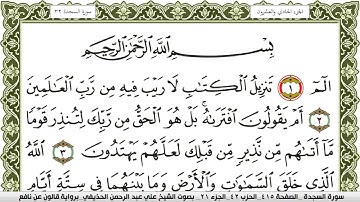 الجزء الحادي والعشرون
سورة السجدة ٣٢
بِسْمِ اللَّهِ الرَّحْمَٰنِ الرَّحِيمِ
أَلَٓمِّٓ ١ تَنزِيلُ الْكِتَٰبِ لَا رَيْبَ فِيهِ مِن رَّبِّ الْعَٰلَمِينَ
٢ أَمْ يَقُولُونَ اَفْتَرَىٰهُ بَلْ هُوَ الْحَقُّ مِن رَّبِّكَ لِتُنذِرَ قَوْمًا
مَّا أَتَىٰهُم مِّن نَّذِيرٍ مِّن قَبْلِكَ لَعَلَّهُمْ يَهْتَدُونَ ٣ اَللَّهُ
الَّذِي خَلَقَ السَّمَٰوَٰتِ وَالْأَرْضَ وَمَا بَيْنَهُمَا فِي سِتَّةِ أَيَّامٍ
سورة السجدة _ الصفحة ٤١٥ _ الحزب ٤٢ _ الجزء ٢١ _ بصوت الشيخ علي عبد الرحمن الحذيفي _ برواية قالون عن نافع